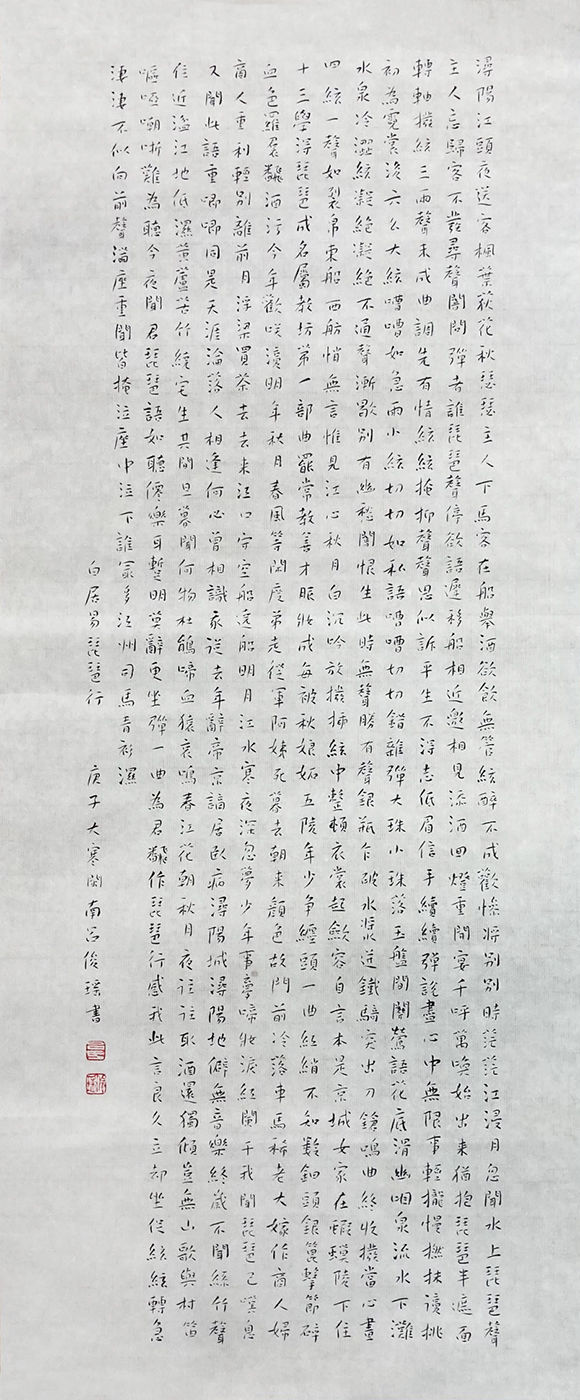 潯陽江頭夜送客楓葉荻花秋瑟瑟主人下馬客在船舉酒欲飲無管絃醉不成歡慘將別別時茫茫江浸月忽聞水上琵琶聲
主人忘歸客不發尋聲闇問彈者誰琵琶聲停欲語遲移船相近邀相見添酒回燈重開宴千呼萬喚始出来猶抱琵琶半遮面
轉軸撥絃三兩聲未成曲調先有情絃絃掩抑聲聲思似訴平生不得志低眉信手續續彈說盡心中無限事輕攏慢撚抹復挑
初為霓裳後六幺大絃嘈嘈如急雨小絃切切如私語嘈嘈切切錯雜彈大珠小珠落玉盤間關鶯語花底滑幽咽泉流水下灘
水泉冷澀絃凝絕凝絕不通聲漸歇別有幽愁闇恨生此時無聲勝有聲銀瓶乍破水漿迸鐵騎突出刀鎗鳴曲終收撥當心畫
四絃一聲如裂帛東船西舫悄無言惟見江心秋月白沉吟放撥插絃中整頓衣裳起斂容自言本是京城女家在蝦蟆陵下住
十三學得琵琶成名屬教坊第一部曲罷常教善才服妝成每被秋娘妬五陵年少爭纏頭一曲紅綃不知數鈿頭銀篦擊節碎
血色羅裙翻酒污今年歡笑復明年秋月春風等閒度弟走從軍阿姨死暮去朝来顏色故門前冷落車馬稀老大嫁作商人婦
商人重利輕別離前月浮梁買茶去去来江口守空船遶船明月江水寒夜深忽夢少年事夢啼妝淚紅闌干我聞琵琶已嘆息
又聞此語重唧唧同是天涯淪落人相逢何必曾相識我從去年辭帝京謫居臥病潯陽城潯陽地僻無音樂終歲不聞絲竹聲
住近湓江地低濕黃蘆苦竹繞宅生其間旦暮聞何物杜鵑啼血猿哀鳴春江花朝秋月夜往往取酒還獨傾豈無山歌與村笛
嘔啞嘲哳難為聽今夜聞君琵琶語如聽僊樂耳暫明莫辭更坐彈一曲為君翻作琵琶行感我此言良久立却坐促絃絃轉急
淒淒不似向前聲滿座重聞皆掩泣座中泣下誰冣多江州司馬青衫濕
白居易琵琶行 庚子大寒閩南呂俊璟書